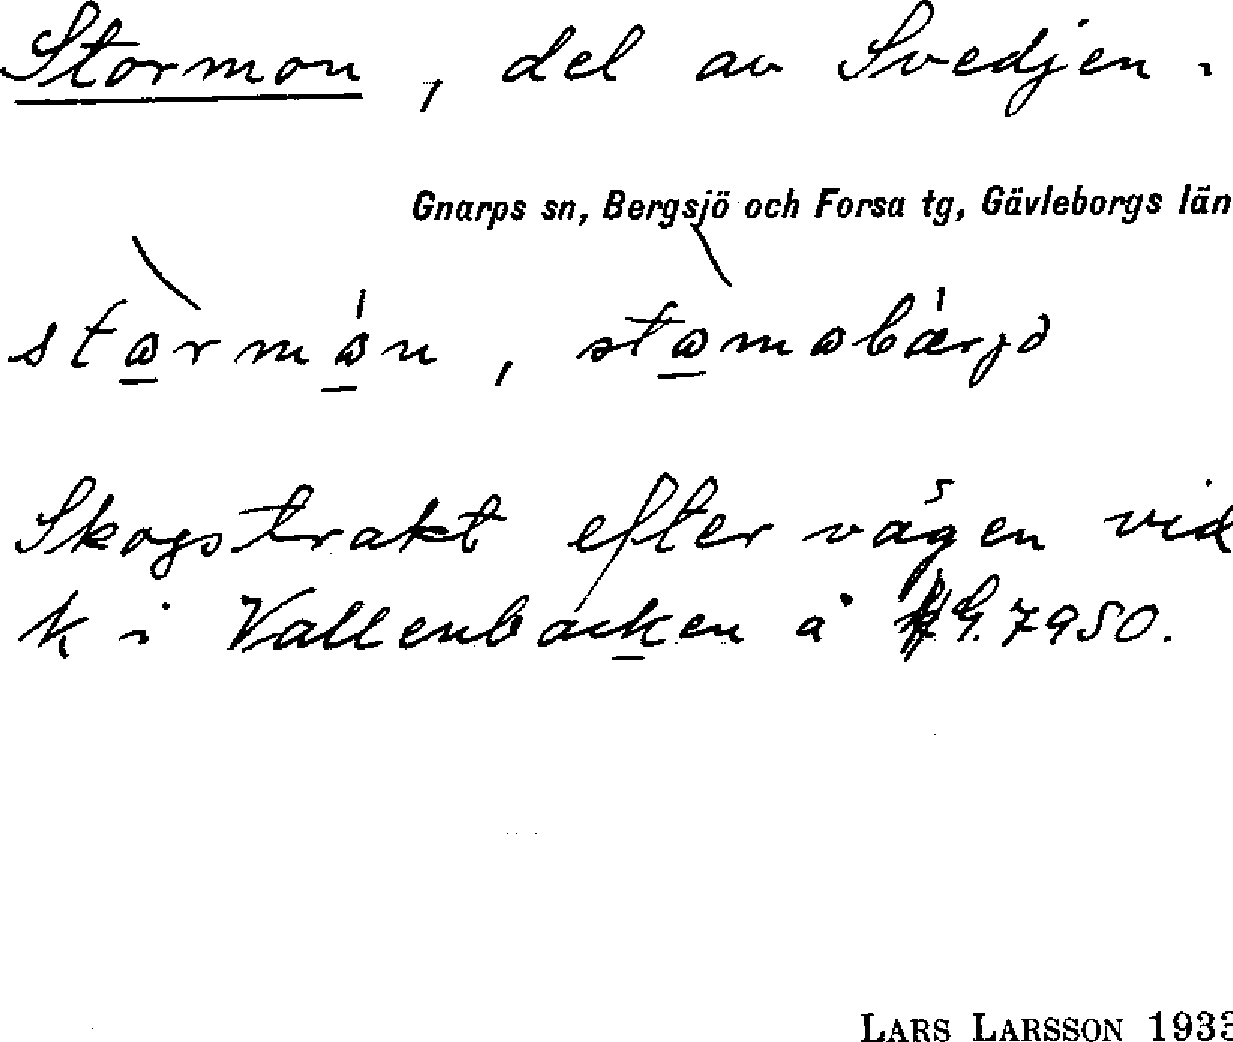 Stormon, del av Svedjen.
Gnarps sn, Bergsjö och Forsa tg, Gävleborgs län
Skogstrakt efter vägen vid
k i Vallenbacken å G. 7950.
LARS LARSSON 193